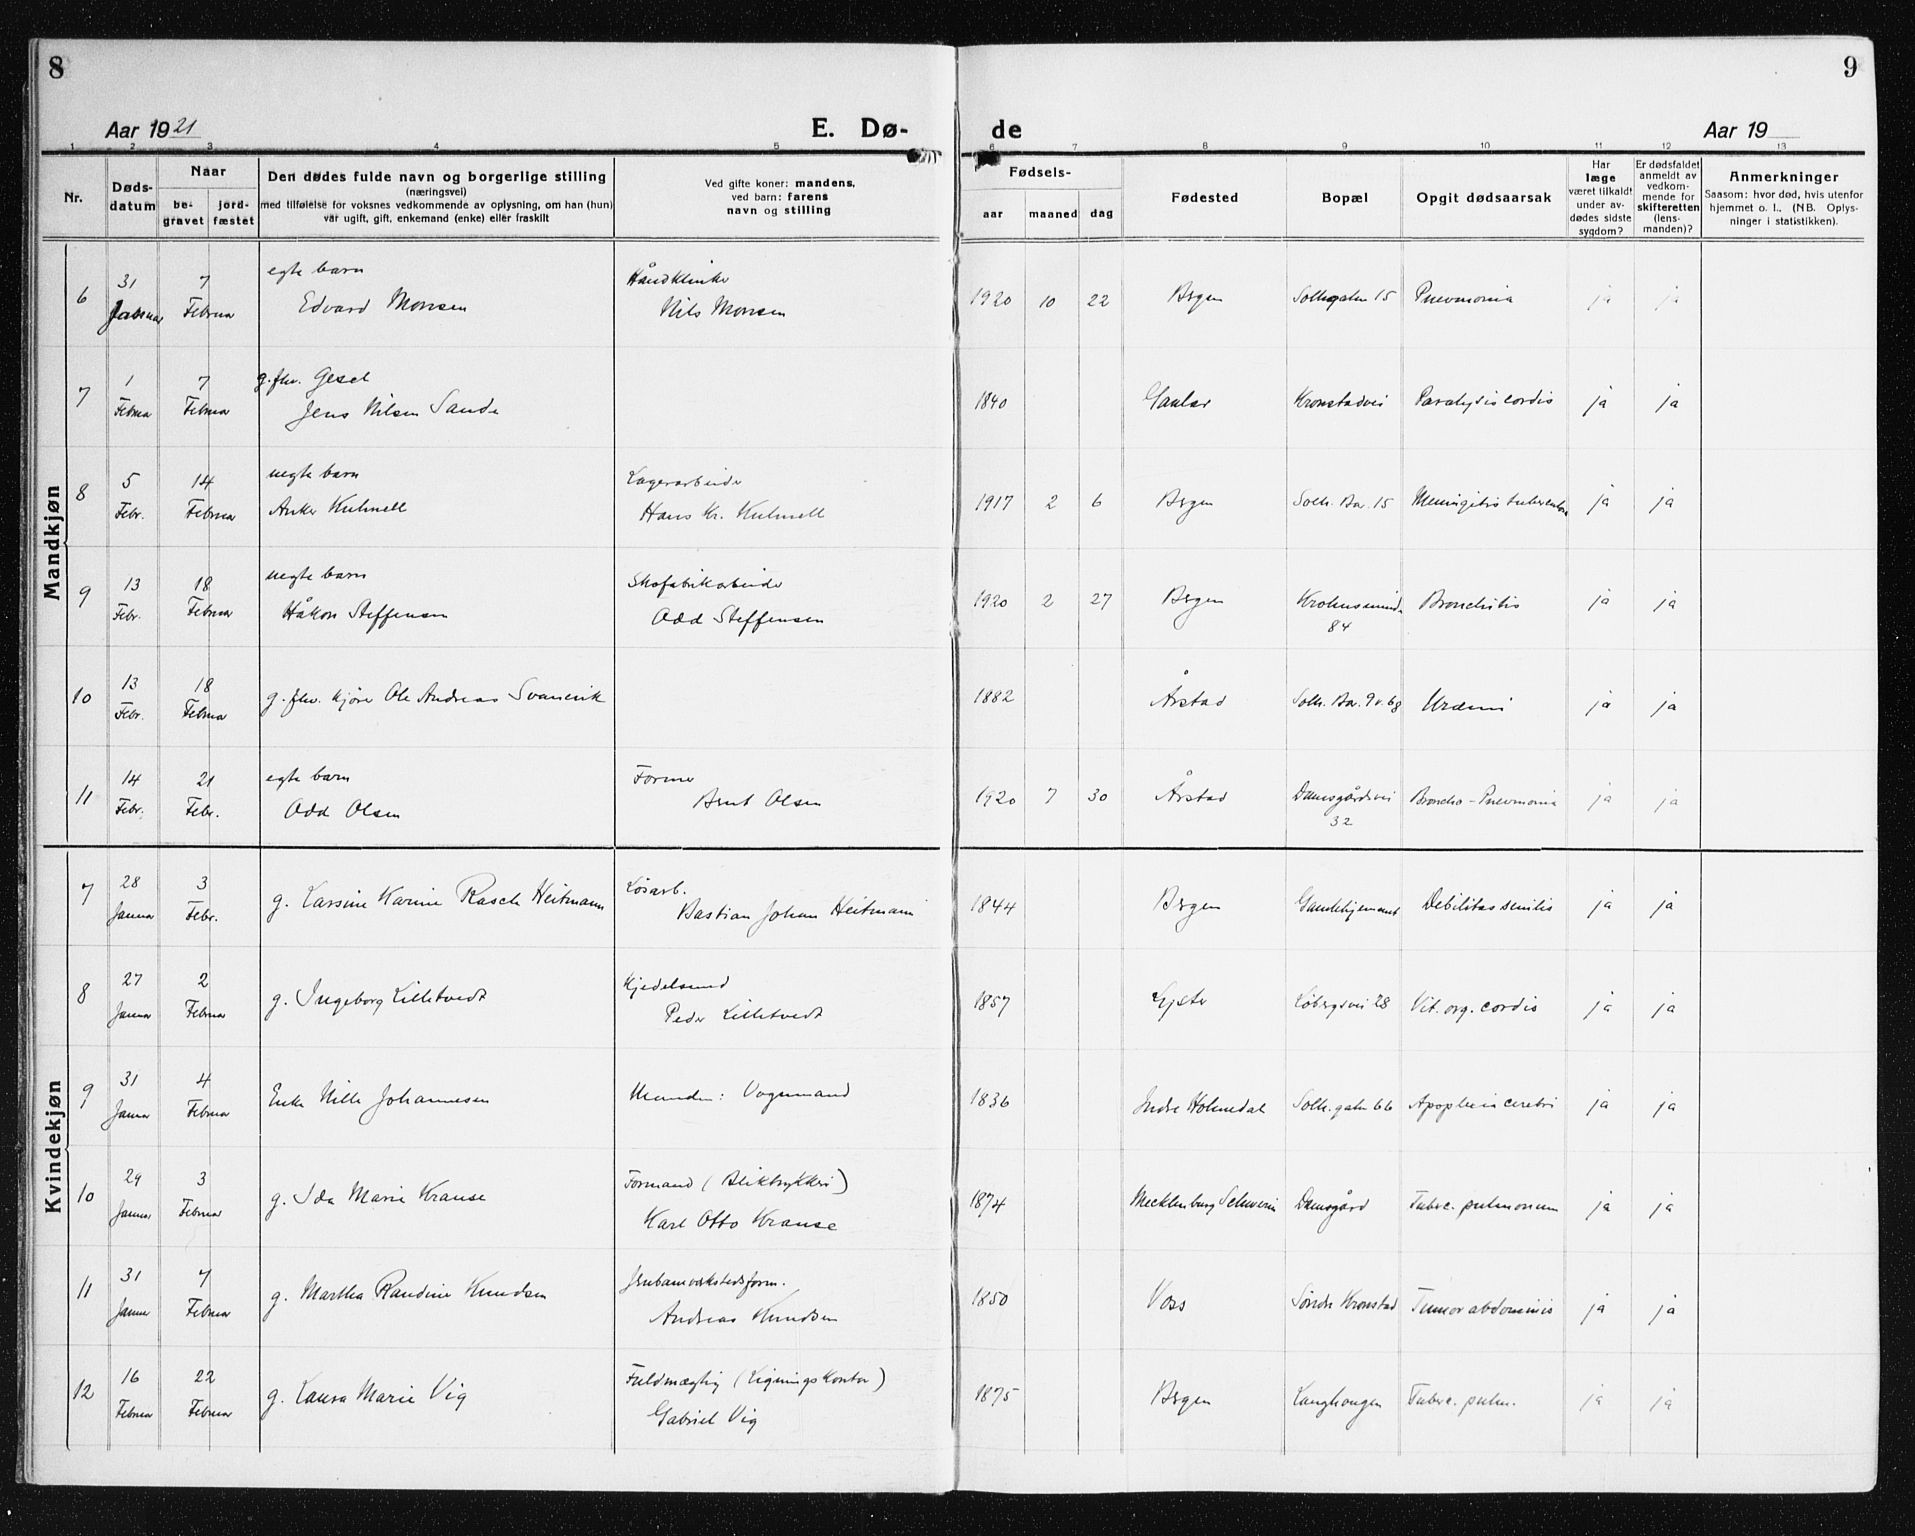 8
9
Aar 1921
E. Dø-
de
Aar 19
1 2 3 4 5 6 7 8 9 10 11 12 13
Nr.
Døds-
datum
Naar
be-
gravet
jord-
fæstet
Den dødes fulde navn og borgerlige stilling
(næringsvei)
med tilføielse for voksnes vedkommende av oplysning, om han (hun)
var ugift, gift, enkemand (enke) eller fraskilt
Ved gifte koner: mandens,
ved barn: farens
navn og stilling
Fødsels-
aar
maaned
dag
Fødested
Bopæl
Opgit dødsaarsak
Har
læge
været tilkaldt
under av-
dødes sidste
sygdom?
Er dødsfaldet
anmeldt av
vedkom-
mende for
skifteretten
(lens-
manden)?
Anmerkninger
Saasom: hvor død, hvis utenfor
hjemmet o. l. (NB. Oplys-
ninger i statistikken).
Mandkjøn
6 31 Januar 7 Februar egte barn Edvard Monsen Nils Monsen 1920 10 22 Bergen Solheimsgaten 15 Pneumonia ja ja
7 1 Februar 7 Februar g. fhv. Gesel Jens Nilsen Sande 1840 Gaular Kronstadvei Paralysis cordis ja ja
8 5 Febr. 14 Februar uegte barn Anker Kuhnell Lagerarbeider Hans Kr. Kuhnell 1917 2 6 Bergen Solh. Bar. 15 Meningitis tuberculosa ja ja
9 13 Febr. 18 Februar uegte barn Håkon Steffensen Skofabrikarbeider Odd Steffensen 1920 2 27 Bergen 84 Bronchitis ja ja
10 13 Febr. 18 Februar g. fhv. kjører Ole Andreas Svanevik 1882 Årstad Solh. Bar. 9 v. 68 Uræmi ja ja
11 14 Febr. 21 Febr. egte barn Odd Olsen Former Bernt Olsen 1920 7 30 Årstad Damsgårdsvei 32 Broncho-Pneumonia ja ja
Kvindekjøn
7 28 Januar 3 Febr. g. Larsine Karine Rasch Heitmann Løsarb. Bastian Johan Heitmann 1844 Bergen Gamlehjemmet Debilitas senilis ja ja
8 27 Januar 2 Februar g. Ingeborg Lilletvedt Kjedelsmed Peder Lilletvedt 1857 Lyster Løbergsvei 28 Vit. org. cordis ja ja
9 31 Januar 4 Februar Enke Nille Johannesen Manden: Vognmand 1836 Indre Holmedal Solh. gaten 66 Apoplexia cerebri ja ja
10 29 Januar 3 Februar g. Ida Marie Krause Formand (Bliktrykkeri) Karl Otto Krause 1874 Mecklenburg Schwerin Damsgård Tuberc. pulmonum ja ja
11 31 Januar 7 Februar g. Martha Randine Knudsen Jernbanverkstedsform. Andreas Knudsen 1850 Voss Søndre Kronstad Tumor abdominis ja ja
12 16 Februar 22 Februar g. Laura Marie Vig Fuldmægtig (Ligningskontor) Gabriel Vig 1875 Bergen Langhaugen Tuberc. pulm. ja ja